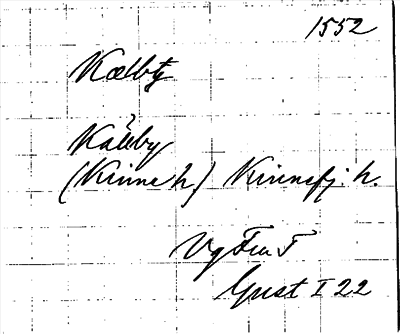 1552
Kælby
Kålby
(Kinne h.) Kinnefj. h.
Vg Fru T
Gust I 22